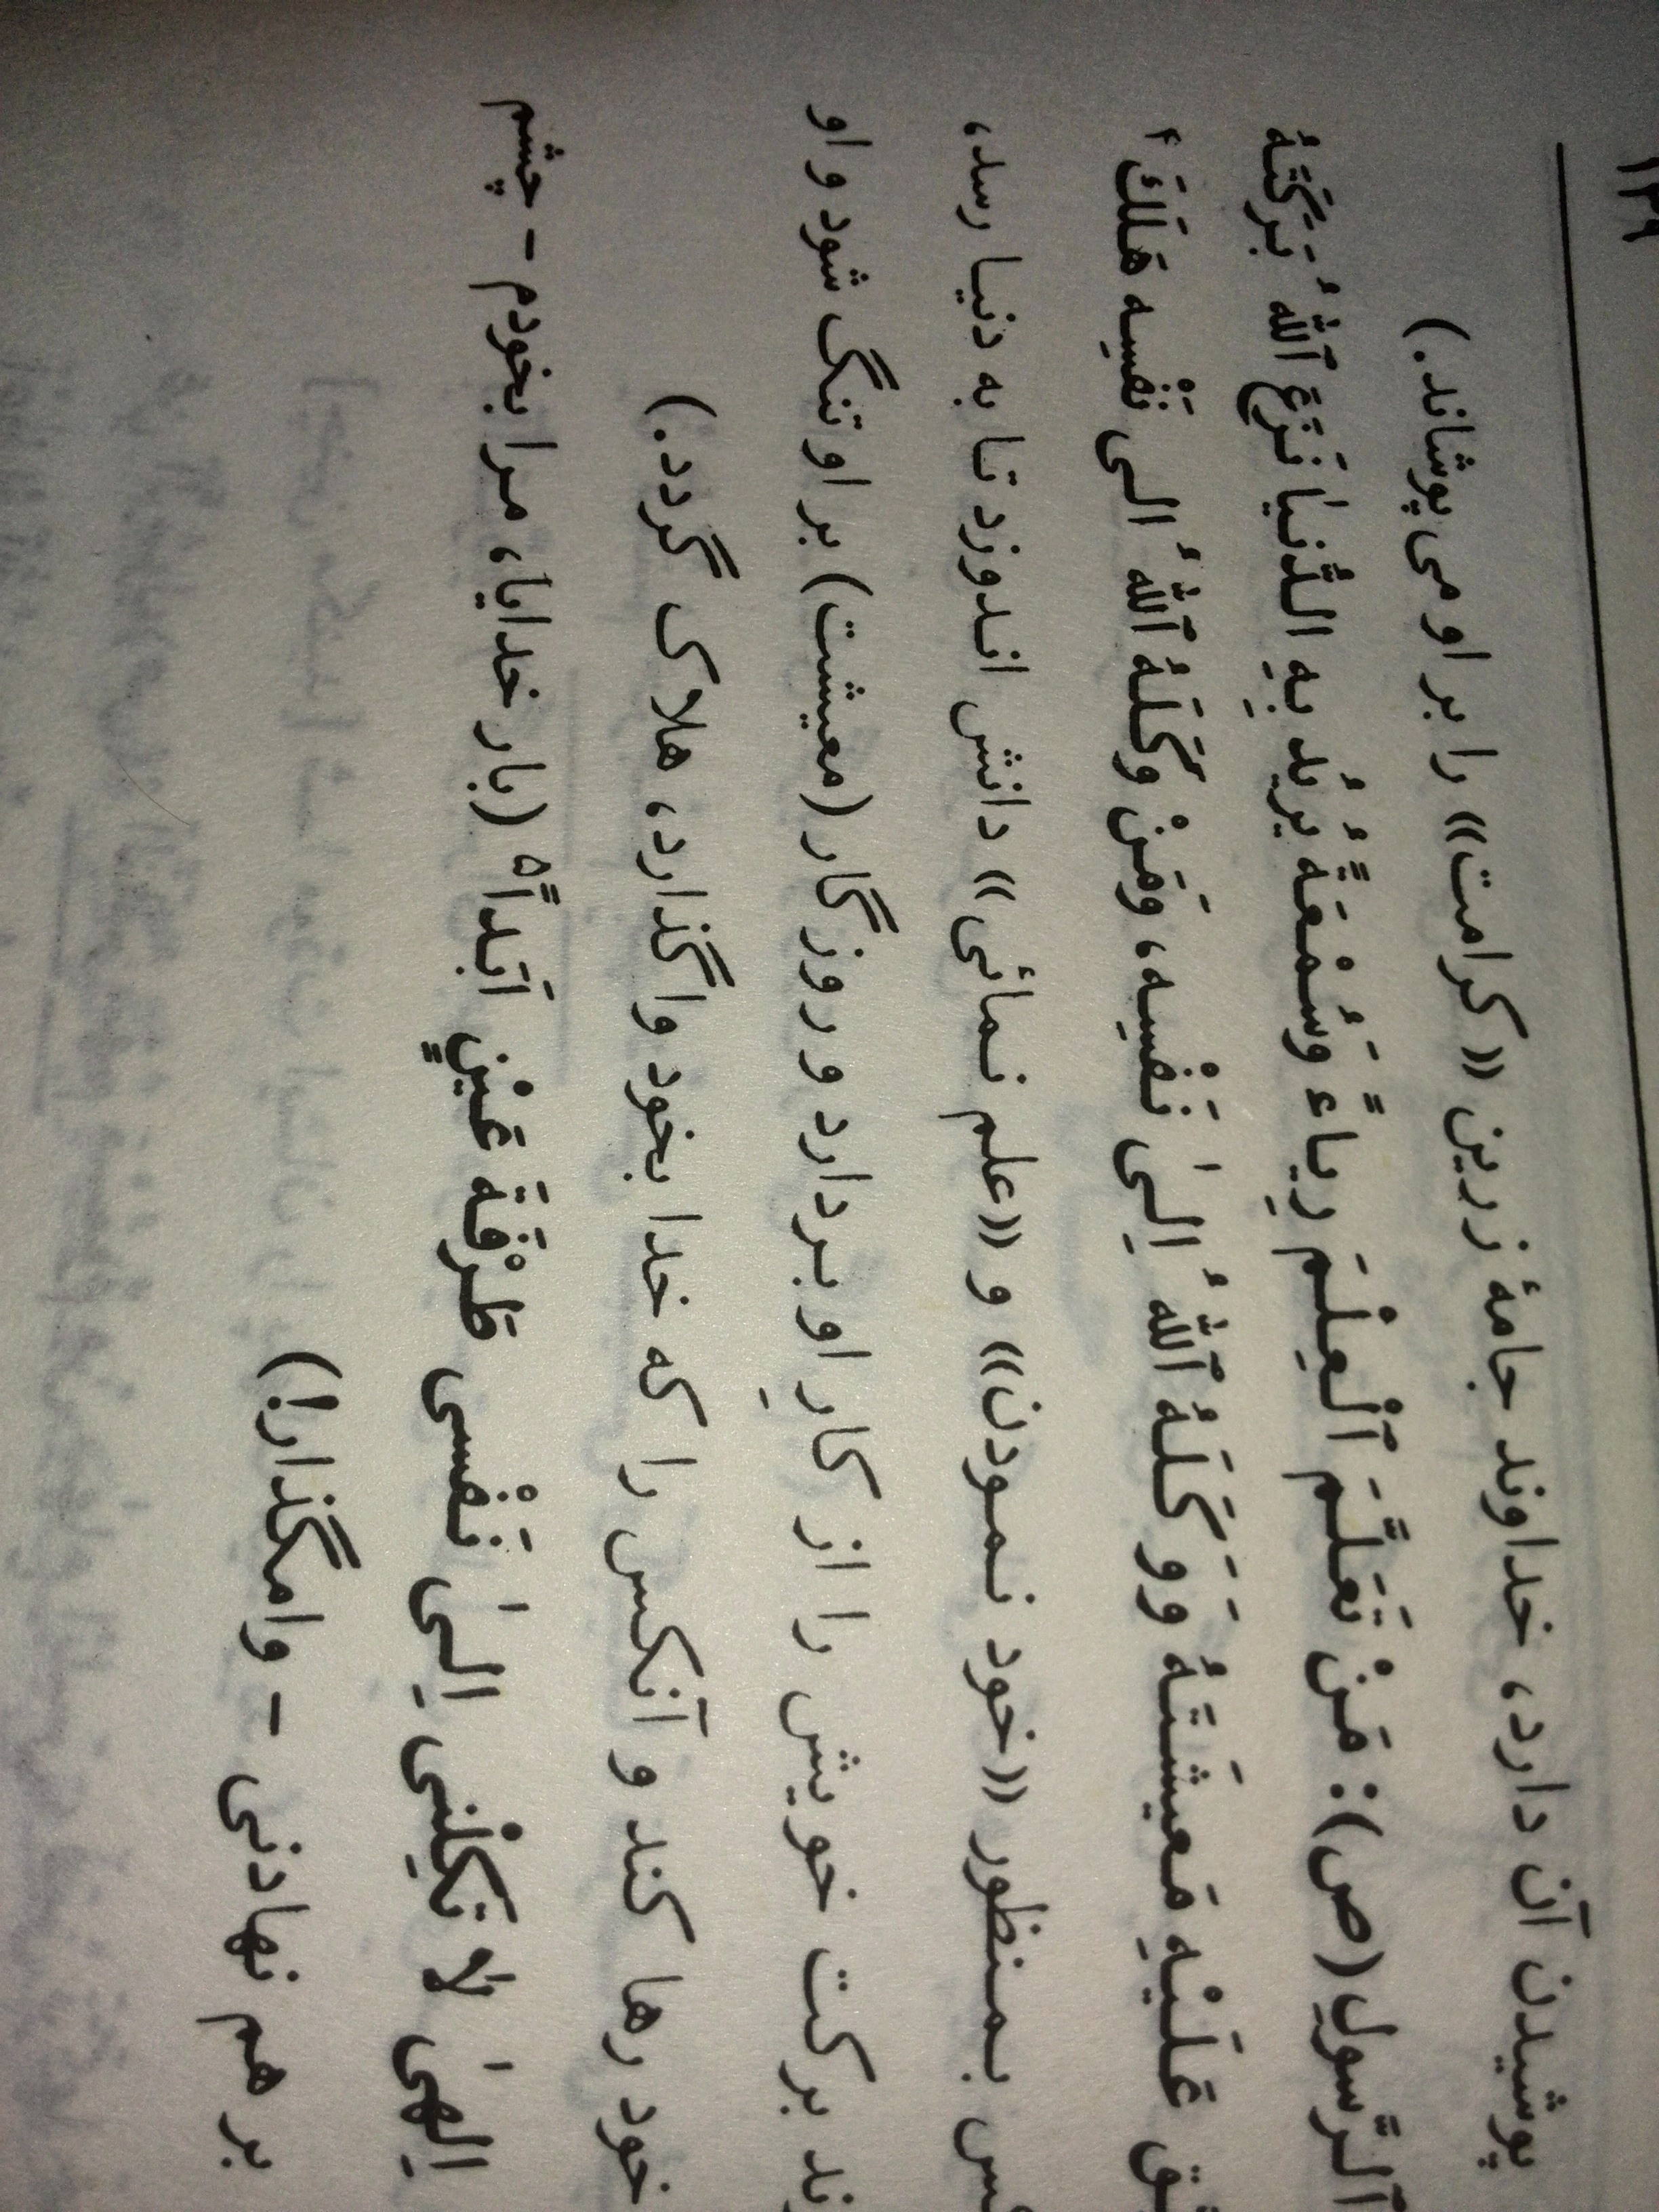 ۱۳۹
پوشیدن آن دارد، خداوند جامهٔ زرین «کرامت» را بر او می پوشاند.)
اَلرَّسولِ (ص): مَنْ تَعَلَّمَ اَلْعِلْمَ رِیاءً وَسُمْعَةً یُریُد بِهِ الدُّنیٰا نَزَعَ اَللهُ بَرَکَتَهُ
عَلَیْهِ مَعیشَتَهُ وَوَکَلَهُ اَللهُ اِلیٰ نَفْسِه، وَمَنْ وَکَلَهُ اَللهُ الی نَفْسِه هَلَکَ ۴
بمنظور «خود نمودن» و «علم نمائی» دانش اندوزد تا به دنیا رسد،
برکت خویش را از کارِ او بردارد و روزگار (معیشت) بر او تنگ شود و او
خود رها کند و آنکس را که خدا بخود واگذارد، هلاک گردد.)
اِلهیٰ لٰا تَکِلْنی اِلیٰ نَفْسی طَرْفَةَ عَیْنٍ اَبَداً ۵ (بار خدایا، مرا بخودم - چشم
بر هم نهادنی - وامگذار!)